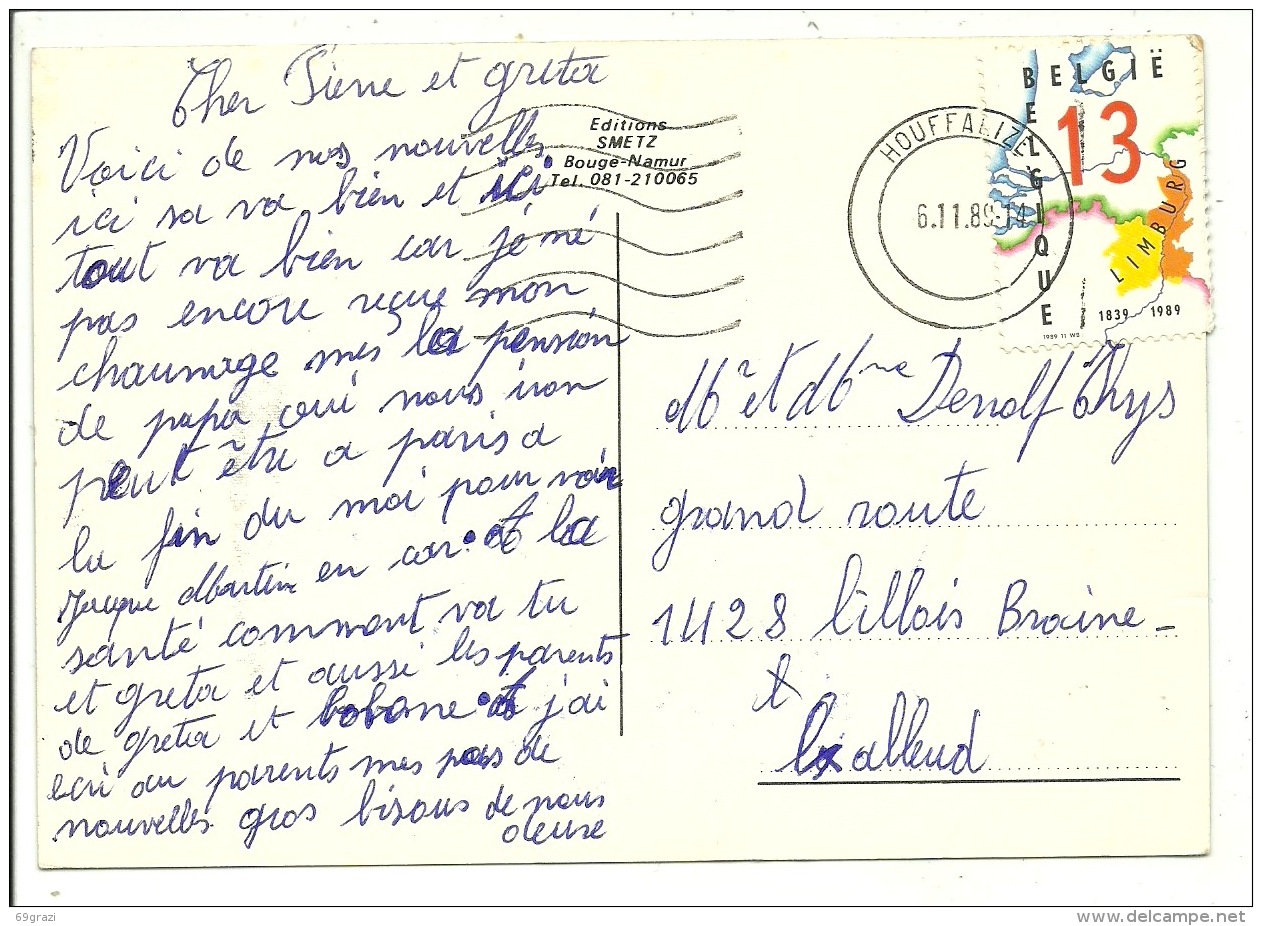 Cher Pierre et greta
Voici de nos nouvelles
ici sa va bien et ici
tout va bien car jé né
pas encore reçue mon
chaumage mes la pension
de papa oui nous iron
peut être a paris a
la fin du moi pour voir
Jacque Martin en car et la
santé comment va tu
et greta et aussi les parents
de greta et bobone et j'ai
ecri au parents mes pas de
nouvelles gros bisous de nous
deuxe
Editions
SMETZ
Bouge-Namur
Tel. 081-210065
HOUFFALIZE
6.11.89-14
BELGIË
BELGIQUE
13
LIMBURG
1839 1989
1989 11 WB
Mr et Mme Denolf Thys
grand route
1428 lillois Braine-
l
alleud
69grazi
www.delcampe.net